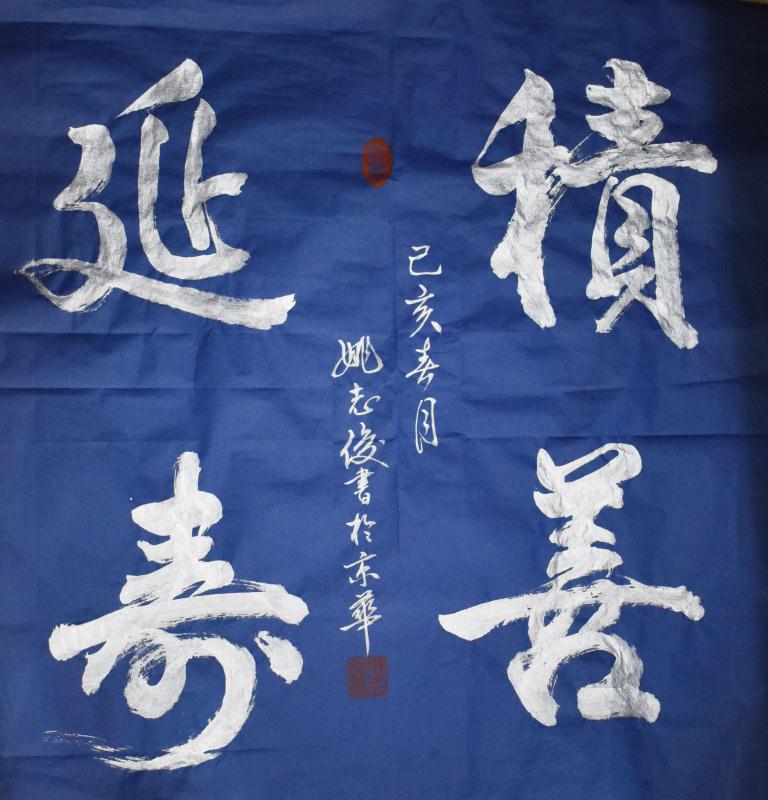 積善
延寿
己亥春月
姚志俊書於京華